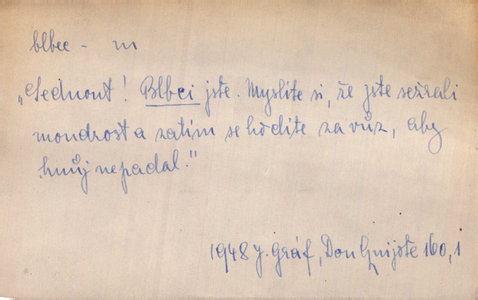 blbec - m
„Sednout! Blbci jste. Myslíte si, že jste sežrali
moudrost a zatím se hodíte za vůz, aby
hnůj nepadal."
1948 J. Gráf, Don Quijote 160,1